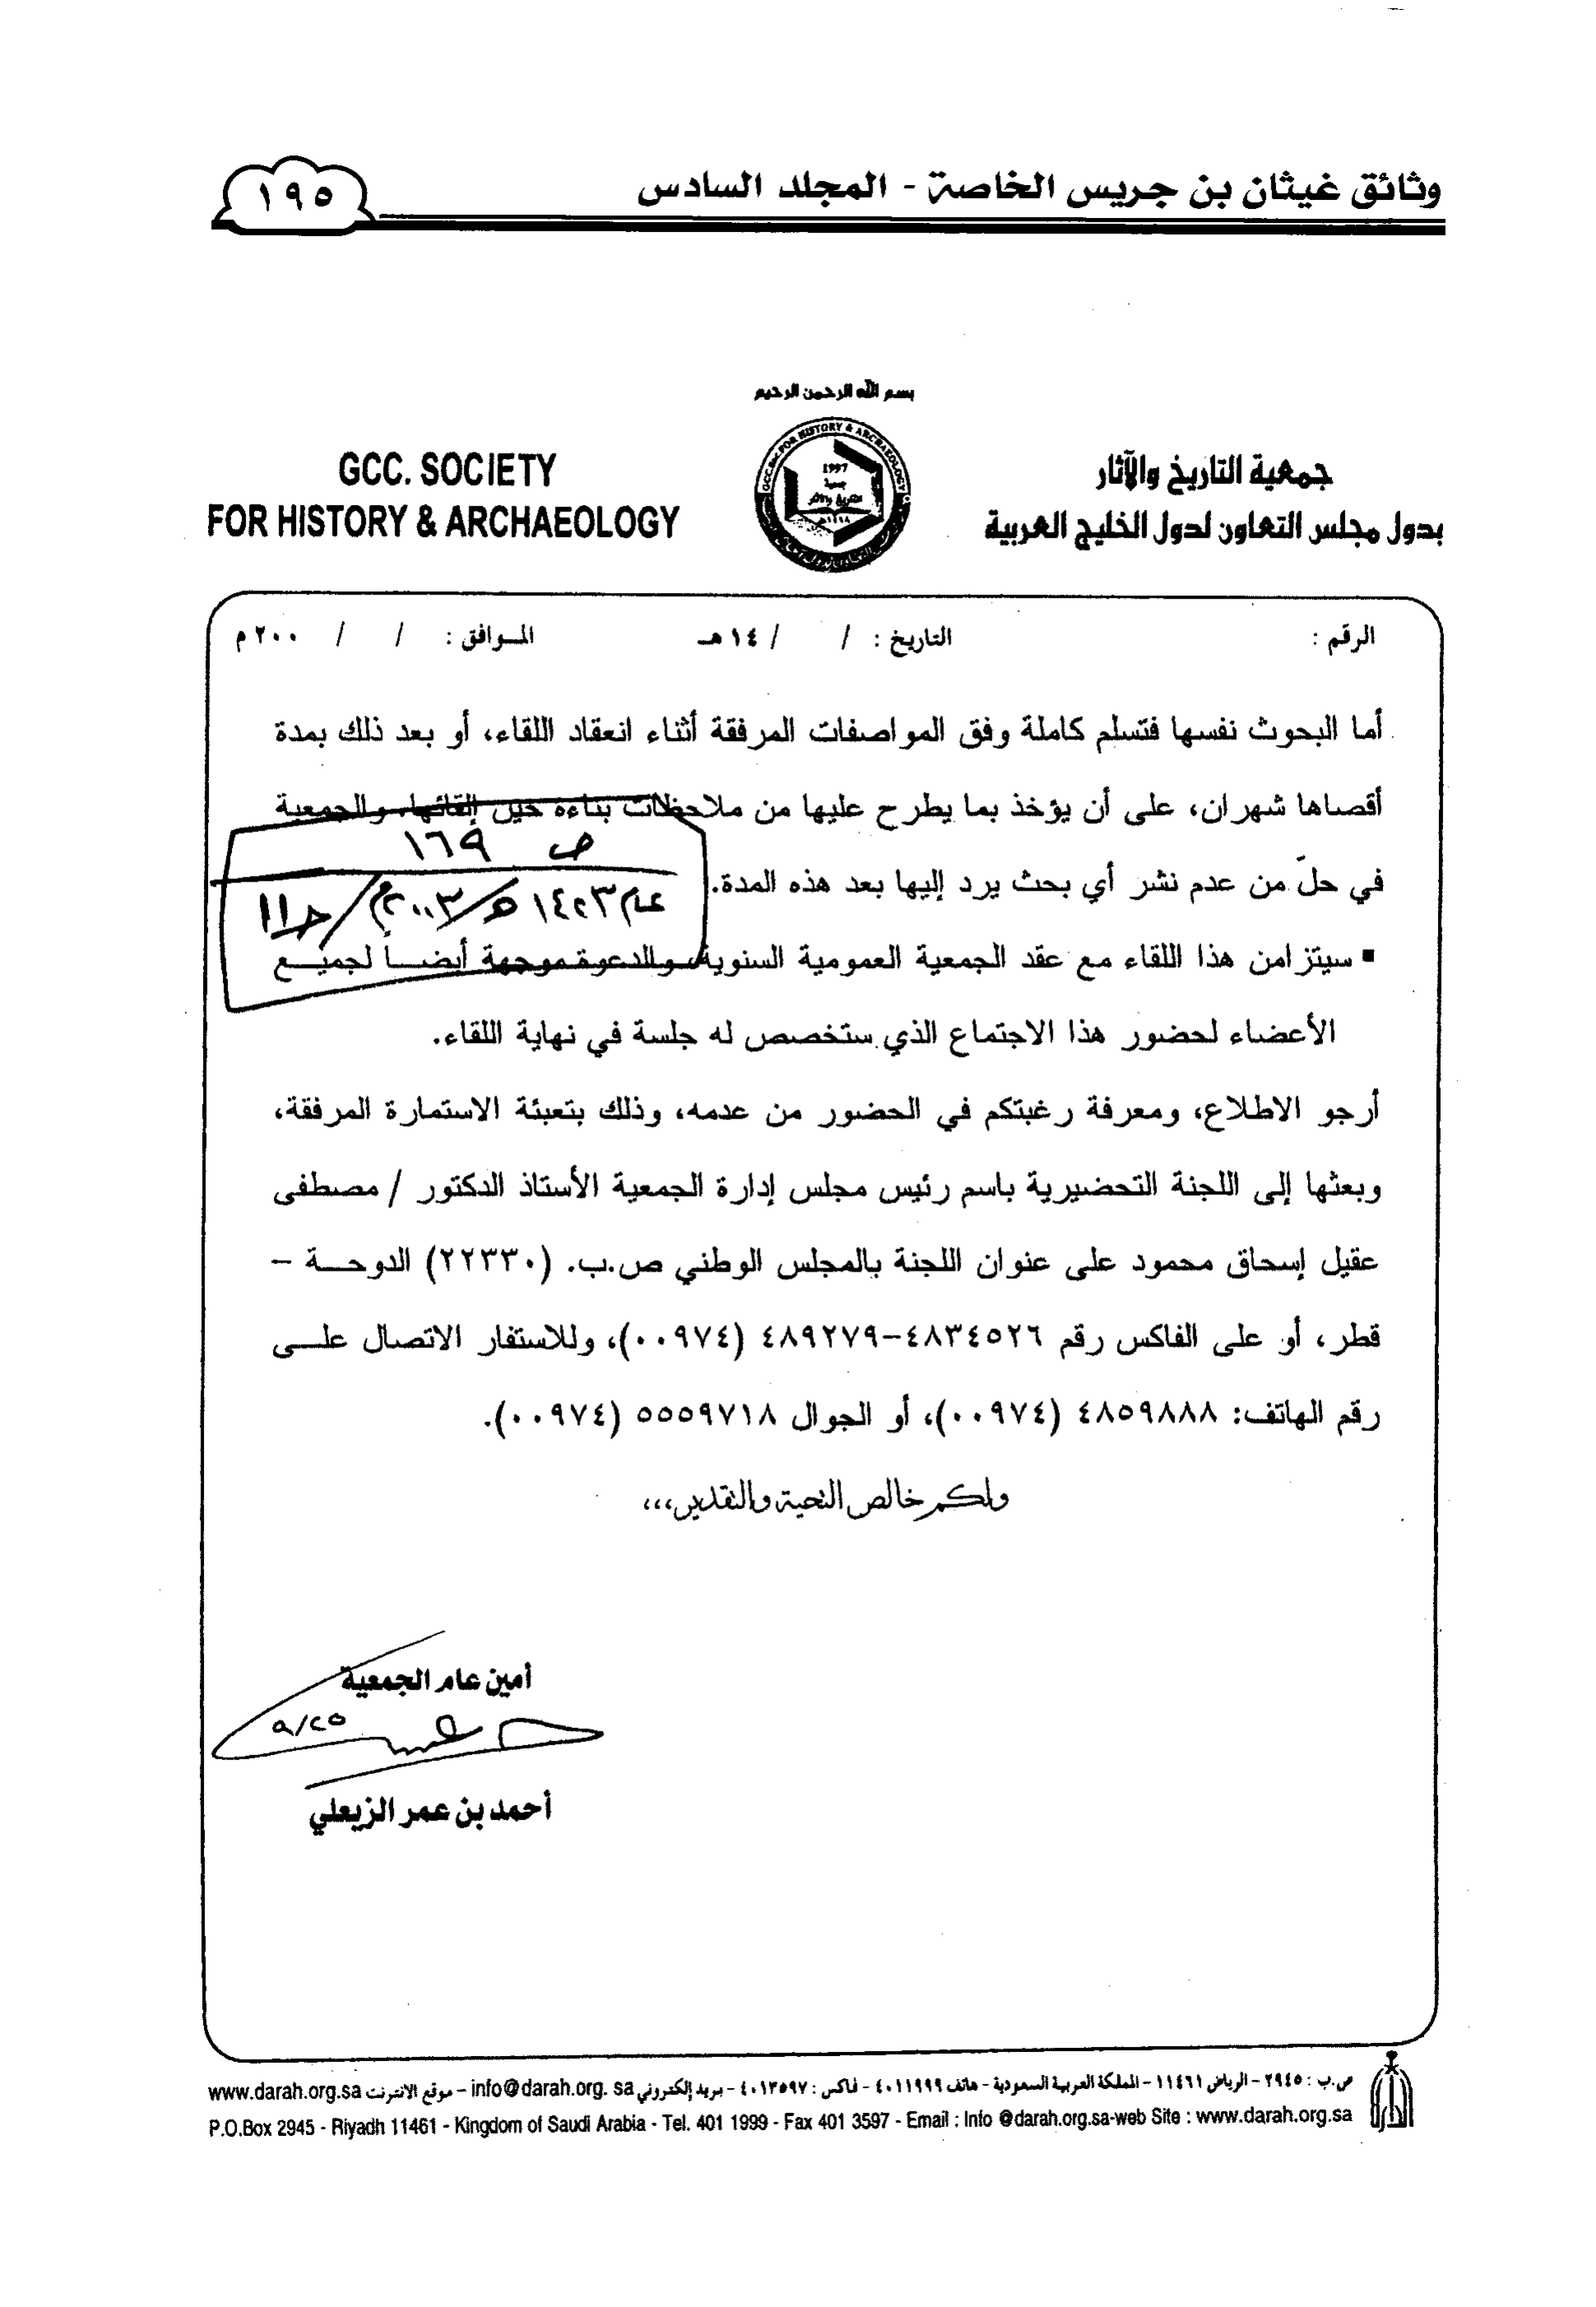 وثائق غيثان بن جريس الخاصة - المجلد السادس
١٩٥
بسم الله الرحمن الرحيم
GCC. SOCIETY
FOR HISTORY & ARCHAEOLOGY
1997
جمعية التاريخ والآثار
بدول مجلس التعاون لدول الخليج العربية
الرقم :
التاريخ : / / ١٤هـ
الموافق : / / ٢٠٠م
أما البحوث نفسها فتسلم كاملة وفق المواصفات المرفقة أثناء انعقاد اللقاء، أو بعد ذلك بمدة
أقصاها شهران، على أن يؤخذ بما يطرح عليها من ملاحظات بناءة حين إلقائها، والجمعية
ص ١٦٩
في حلّ من عدم نشر أي بحث يرد إليها بعد هذه المدة.
عام ١٤٢٣هـ/٢٠٠٣م/ج١١
▪ سيتزامن هذا اللقاء مع عقد الجمعية العمومية السنوية، والدعوة موجهة أيضاً لجميع
الأعضاء لحضور هذا الاجتماع الذي ستخصص له جلسة في نهاية اللقاء.
أرجو الاطلاع، ومعرفة رغبتكم في الحضور من عدمه، وذلك بتعبئة الاستمارة المرفقة،
وبعثها إلى اللجنة التحضيرية باسم رئيس مجلس إدارة الجمعية الأستاذ الدكتور / مصطفى
عقيل إسحاق محمود على عنوان اللجنة بالمجلس الوطني ص.ب. (٢٢٣٣٠) الدوحة –
قطر، أو على الفاكس رقم ٤٨٣٤٥٢٦-٤٨٩٢٧٩ (٠٠٩٧٤)، وللاستفار الاتصال على
رقم الهاتف: ٤٨٥٩٨٨٨ (٠٠٩٧٤)، أو الجوال ٥٥٥٩٧١٨ (٠٠٩٧٤).
ولكم خالص التحية والتقدير،،،
أمين عام الجمعية
٩/٢٥
أحمد بن عمر الزيعلي
ص.ب : ٢٩٤٥ - الرياض ١١٤٦١ - المملكة العربية السعودية - هاتف ٤٠١١٩٩٩ - فاكس : ٤٠١٣٥٩٧ - بريد إلكتروني info@darah.org. sa - موقع الانترنت www.darah.org.sa
P.O.Box 2945 - Riyadh 11461 - Kingdom of Saudi Arabia - Tel. 401 1999 - Fax 401 3597 - Email : Info @darah.org.sa-web Site : www.darah.org.sa